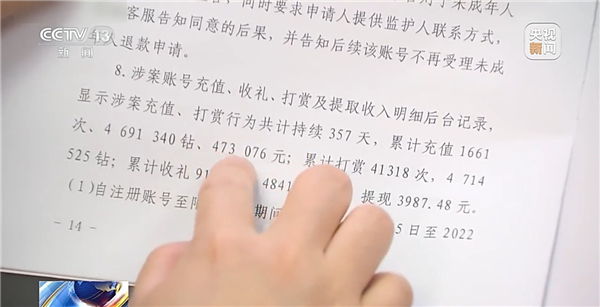 CCTV 13
新闻
央视
新闻
客服告知同意的后果，并告知后续该账号不再受理未成
人退款申请。
8. 涉案账号充值、收礼、打赏及提取收入明细后台记录，
显示涉案充值、打赏行为共计持续 357 天，累计充值 1661
次、4 691 340 钻、473 076 元；累计打赏 41318 次，4 714
525 钻；累计收礼 91 4841 提现 3987.48 元。
(1)自注册账号至 期间 5 日至 2022
- 14 -
同时要求申请人提供监护人联系方式，